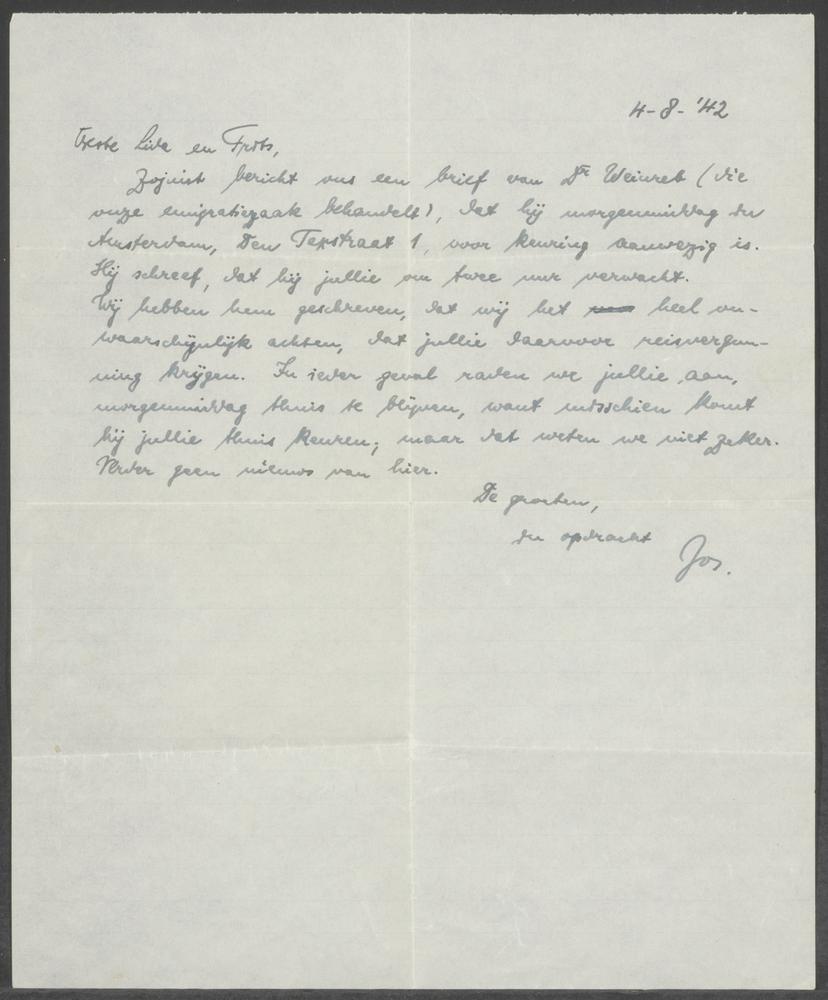 4-8-'42
Beste Lida en Frits,
Zojuist bericht ons een brief van Dr Weinreb (die
onze emigratiezaak behandelt), dat hij morgenmiddag in
Amsterdam, Den Texstraat 1, voor keuring aanwezig is.
Hij schreef, dat hij jullie om twee uur verwacht.
Wij hebben hem geschreven, dat wij het heel on-
waarschijnlijk achten, dat jullie daarvoor reisvergun-
ning krijgen. In ieder geval raden we jullie aan,
morgenmiddag thuis te blijven, want misschien komt
hij jullie thuis keuren; maar dat weten we niet zeker.
Verder geen nieuws van hier.
De groeten,
in opdracht
Jos.